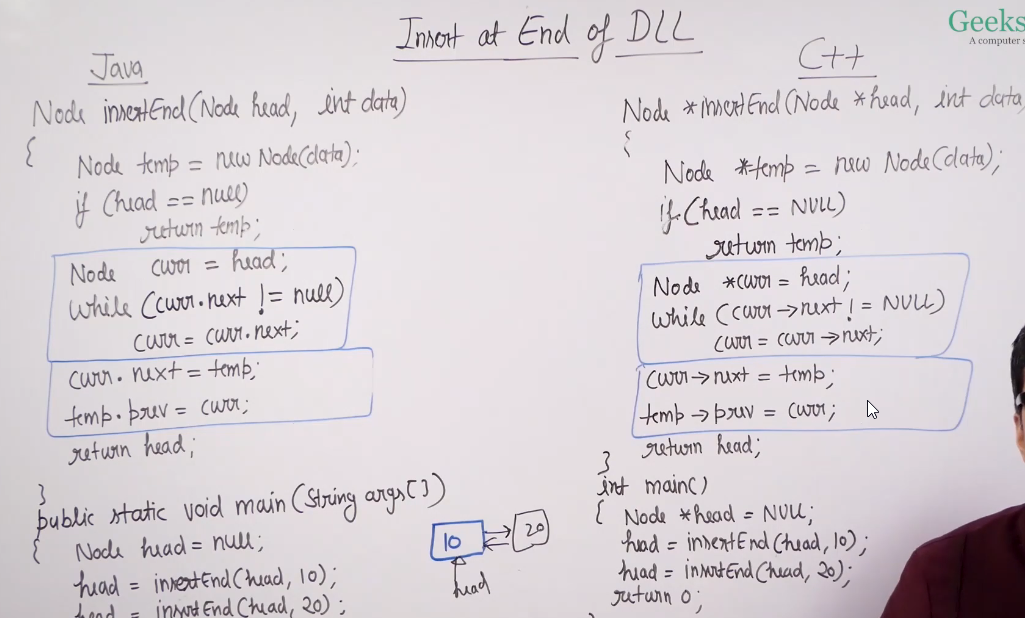 Insert at End of DLL
Geeks
A computer s
Java
Node insertEnd(Node head, int data)
{
Node temp = new Node(data);
if (head == null)
return temp;
Node curr = head;
while (curr.next != null)
curr = curr.next;
curr.next = temp;
temp.prev = curr;
return head;
}
public static void main(String args[])
{
Node head = null;
head = insertEnd(head, 10);
head = insertEnd(head, 20);
10
20
head
C++
Node *insertEnd(Node *head, int data
{
Node *temp = new Node(data);
if (head == NULL)
return temp;
Node *curr = head;
while (curr→next != NULL)
curr = curr→next;
curr→next = temp;
temp→prev = curr;
return head;
}
int main()
{
Node *head = NULL;
head = insertEnd(head, 10);
head = insertEnd(head, 20);
return 0;